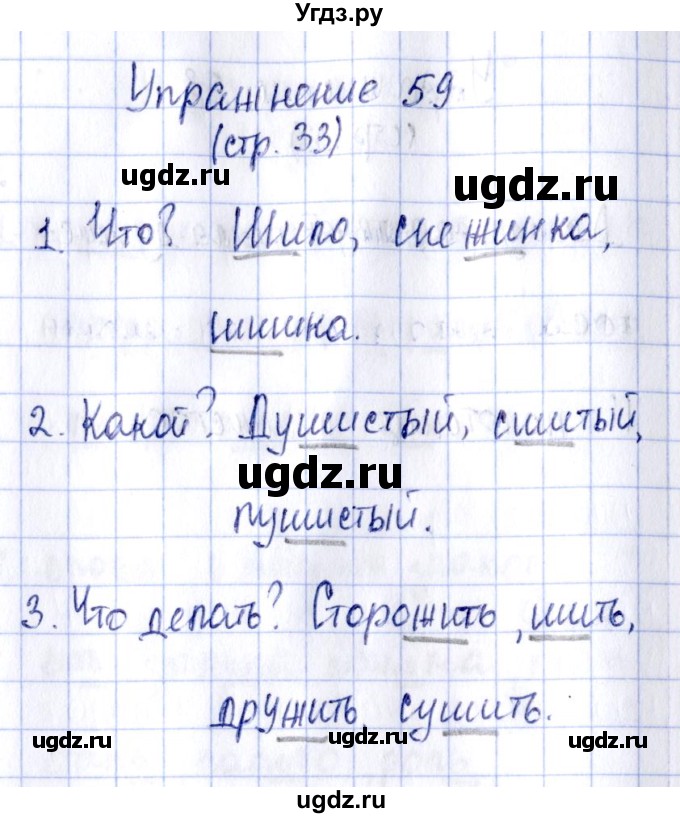 Угдз.ру
Упражнение 59
(стр. 33)
ugdz.ru
ugdz.ru
1. Что? Шило, снежинка,
шишка.
2. Какой? Душистый, сшитый,
ugdz.ru
пушистый.
3. Что делать? Сторожить, шить,
дружить, сушить.
ugdz.ru
ugdz.ru
ugdz.ru
ugdz.ru